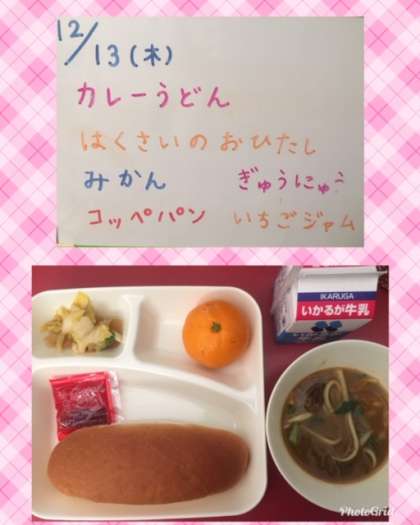 12/13(木)
カレーうどん
はくさいのおひたし
みかん ぎゅうにゅう
コッペパン いちごジャム
IKARUGA
いかるが牛乳
PhotoGrid